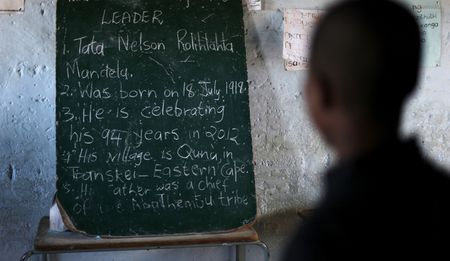 LEADER
1. Tata Nelson Rolihlahla
Mandela.
2. Was born on 18 July, 1918.
3. He is celebrating
his 94 years in 2012
4 His village is Qunu, in
Transkei - Eastern Cape.
5. Hi father was a chief
of the Abathembu tribe